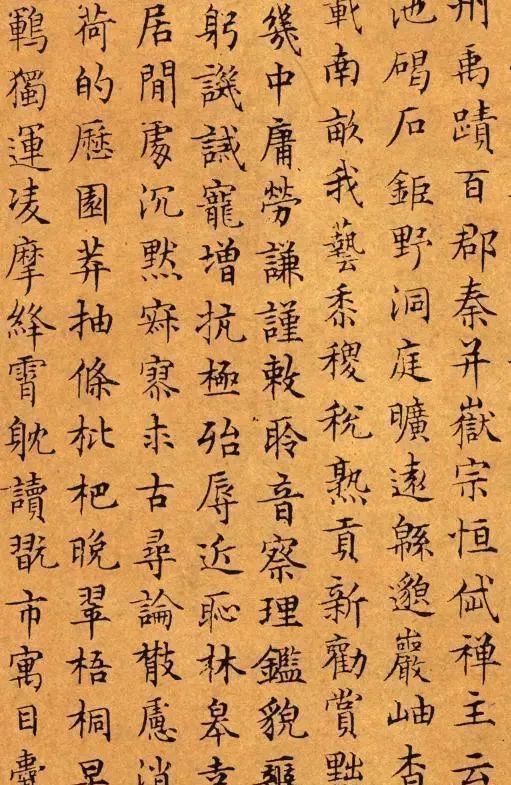 州禹蹟百郡秦并嶽宗恒岱禅主云
池碣石鉅野洞庭曠遠緜邈巖岫杳
載南畝我藝黍稷稅熟貢新勸賞黜
幾中庸勞謙謹敕聆音察理鑑貌辨
躬譏誡寵增抗極殆辱近恥林皋幸
居閒處沉默寂寥求古尋論散慮消
荷的歷園莽抽條枇杷晚翠梧桐早
鵾獨運凌摩絳霄躭讀翫市寓目囊